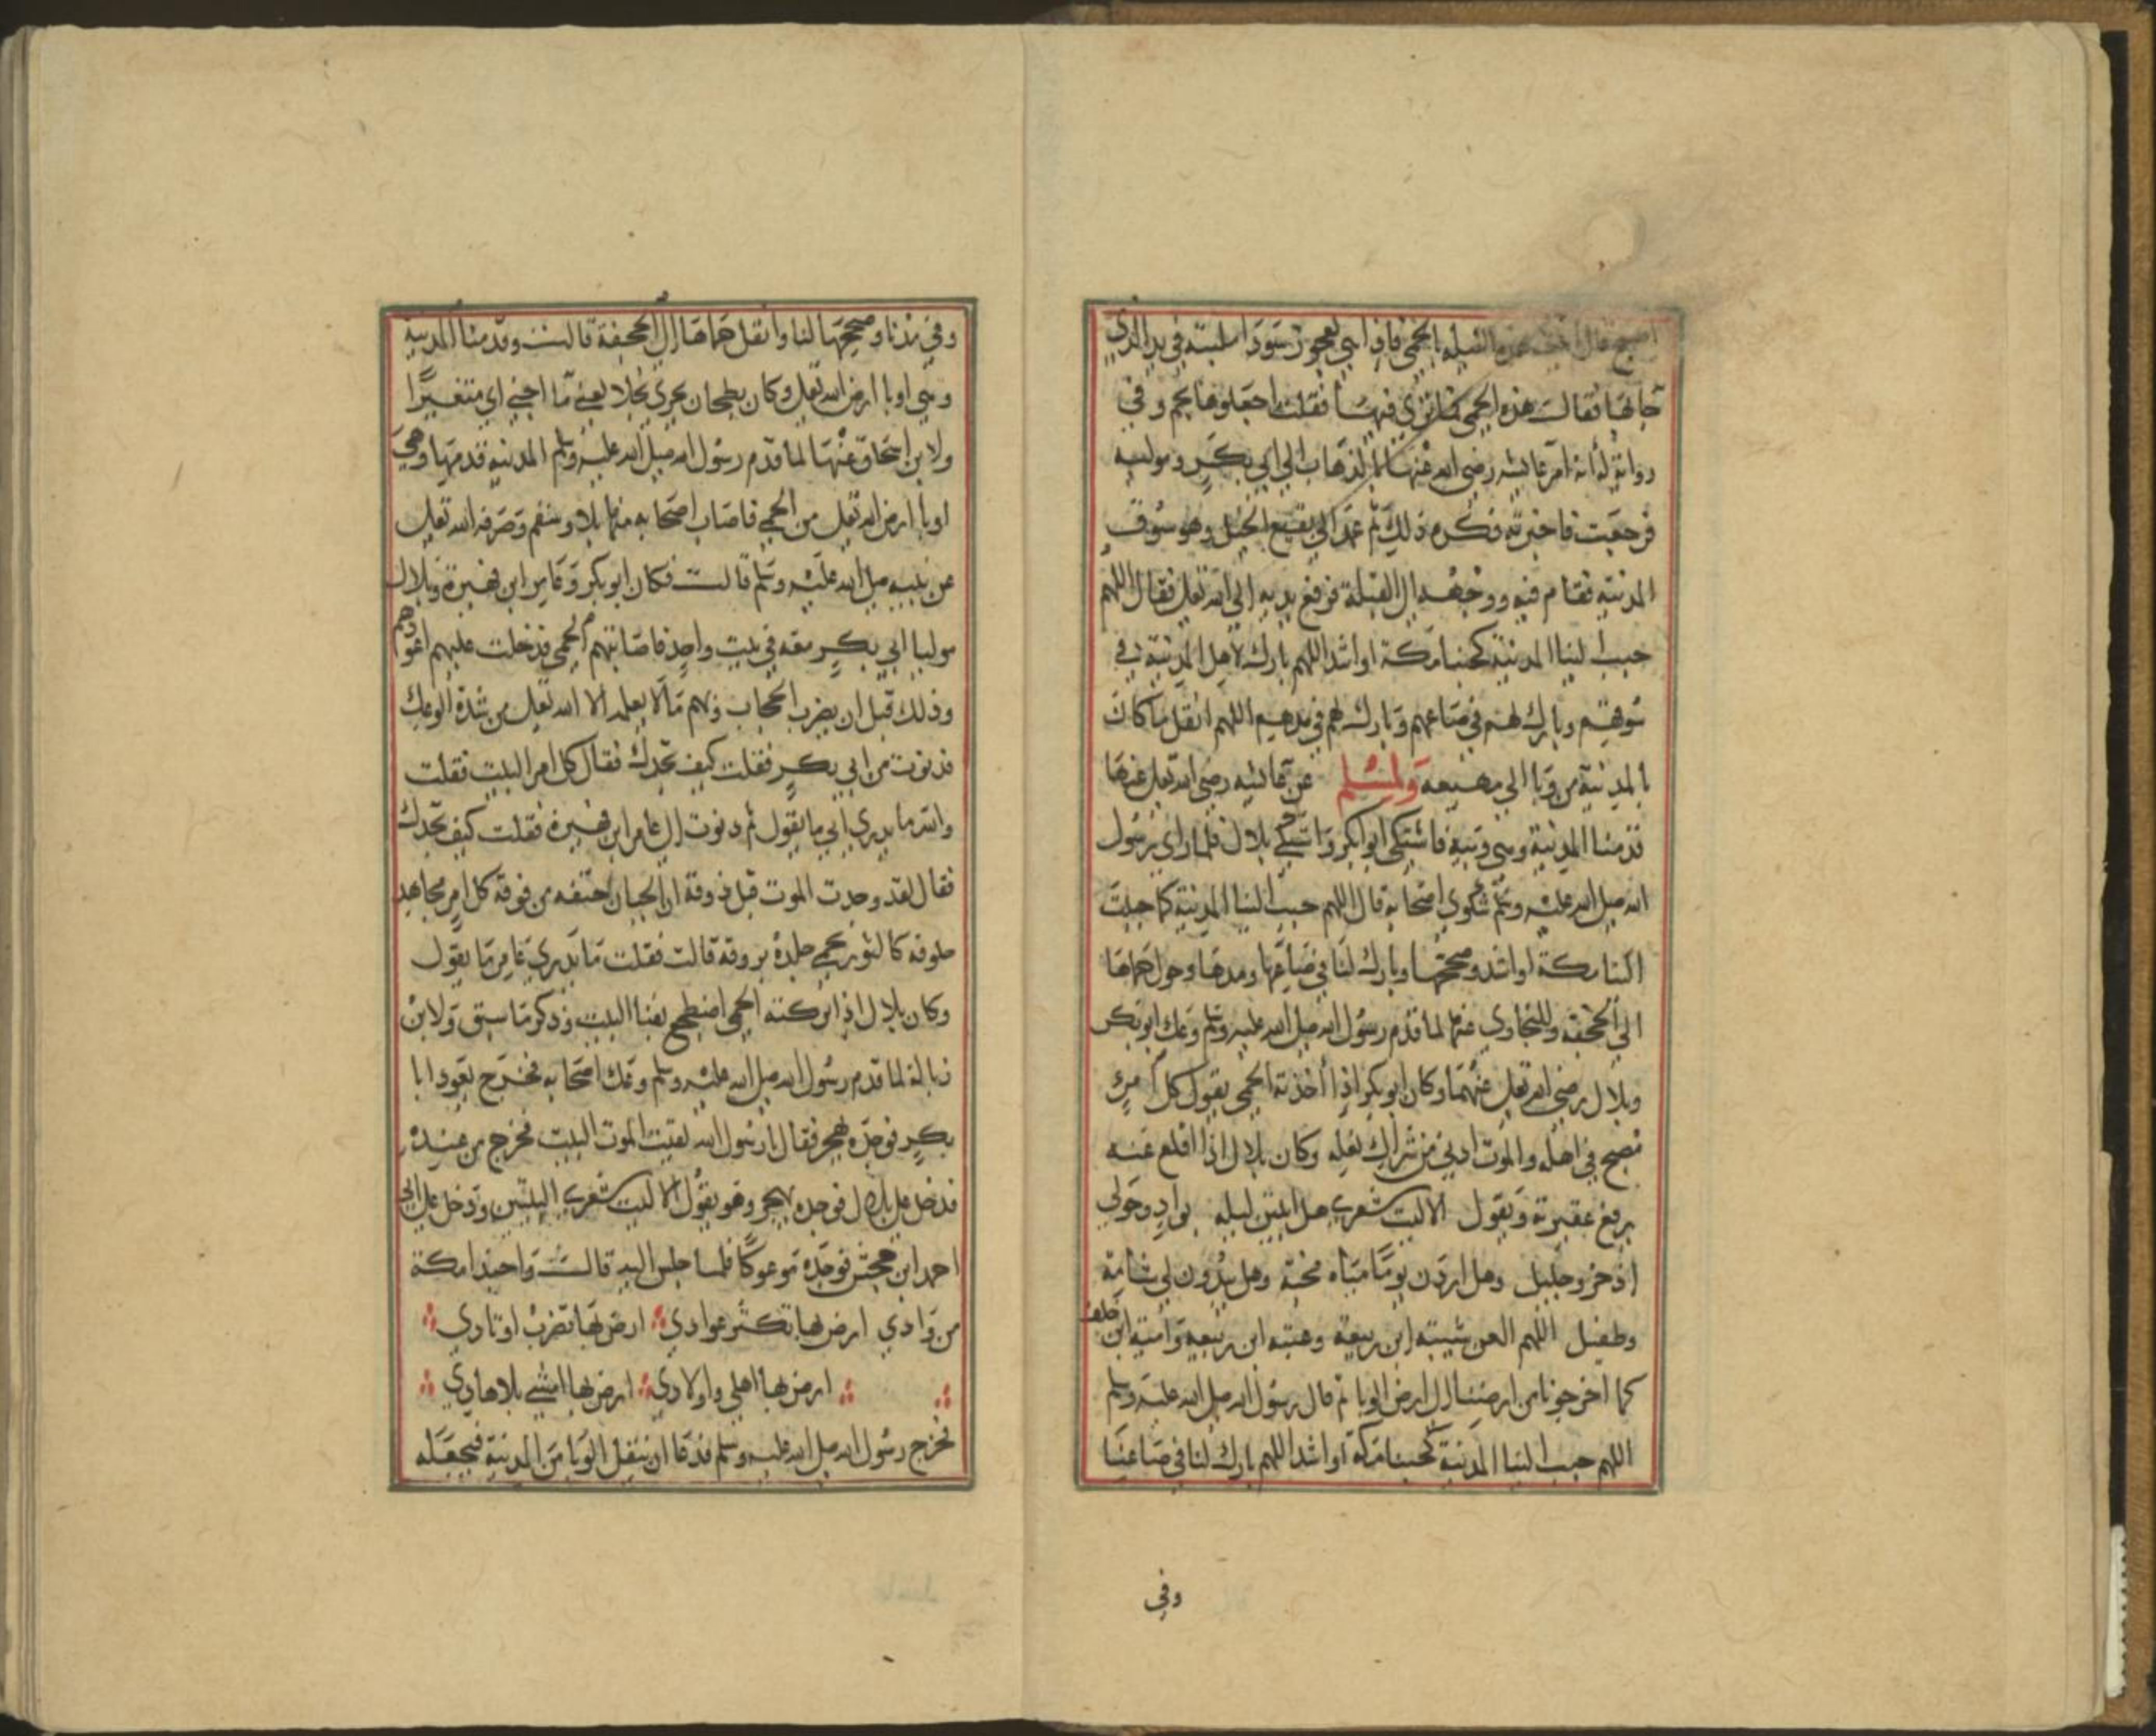 اصبح قال اتيت هذه الليلة بالحمى فاذا بي بعجوز سودا ملببة في يد الذي
جا بها فقالت هذه الحمى فما ترى فيها فقلت اجعلوها بخم وفي
رواية له انه امر عايشه رضي الله عنها بالذهاب الى ابي بكر وموليه
فرجعت فاخبرته فكره ذلك ثم عمد الى بقيع الخيل وهو سوق
المدينه فقام فيه ووجهه الى القبلة فرفع يديه الى الله تعلى فقال اللهم
حبب الينا المدينة كحبنا مكة او اشد اللهم بارك لاهل المدينة في
سوقهم وبارك لهم في صاعهم وبارك لهم في مدهم اللهم انقل ما كان
بالمدينة من وبا الى مهيعه ولمسلم عن عايشه رضي الله تعلى عنها
قدمنا المدينة وهي وبيه فاشتكى ابو بكر واشتكى بلال فلما راى رسول
الله صلى الله عليه وسلم شكوى اصحابه قال اللهم حبب الينا المدينة كما حببت
الينا مكة او اشد وصححها وبارك لنا في صاعها ومدها وحول حماها
الى الجحفه وللبخاري عنها لما قدم رسول الله صلى الله عليه وسلم وعك ابو بكر
وبلال رضي الله تعلى عنهما وكان ابو بكر اذا اخذته الحمى يقول كل امرئ
مصبح في اهله والموت ادنى من شراك نعله وكان بلال اذا اقلع عنه
يرفع عقيرته ويقول الا ليت شعري هل ابيتن ليله بواد وحولي
اذخر وجليل وهل اردن يوما مياه مجنة وهل يبدون لي شامة
وطفيل اللهم العن شيبه ابن ربيعة وعتبه ابن ربيعه وامية ابن خلف
كما اخرجونا من ارضنا الى ارض الوبا ثم قال رسول الله صلى الله عليه وسلم
اللهم حبب الينا المدينة كحبنا مكة او اشد اللهم بارك لنا في صاعنا
وفي
وفي مدنا وصححها لنا وانقل حماها الى الجحفة قالت وقدمنا المدينة
وهي اوبا ارض الله تعلى وكان بطحان يجري نجلا يعني ما اجنا اي متغيرا
ولابن اسحاق عنها لما قدم رسول الله صلى الله عليه وسلم المدينه قدمها وهي
اوبا ارض الله تعلى من الحمى فاصاب اصحابه منها بلا وسقم وصرفه الله تعلى
عن نبيه صلى الله عليه وسلم قالت فكان ابو بكر وعامر ابن فهيرة وبلال
موليا ابي بكر معه في بيت واحد فاصابتهم الحمى فدخلت عليهم اعودهم
وذلك قبل ان يضرب الحجاب وبهم ما لا يعلمه الا الله تعلى من شدة الوعك
فدنوت من ابي بكر فقلت كيف تجدك فقال كل امر البيت فقلت
والله ما يدري ابي ما يقول ثم دنوت الى عامر ابن فهيرة فقلت كيف تجدك
فقال لقد وجدت الموت قبل ذوقه ان الجبان حتفه من فوقه كل امر مجاهد
بطوقه كالثور يحمي جلده بروقه قالت فقلت ما يدري عامر ما يقول
وكان بلال اذا تركته الحمى اضطجع بفنا البيت وذكر ما سبق ولابن
زبالة لما قدم رسول الله صلى الله عليه وسلم وعك اصحابه فخرج يعود ابا
بكر فوجده يهجر فقال يا رسول الله لقيت الموت البيت فخرج من عنده
فدخل على بلال فوجده يهجر وهو يقول الا ليت شعري البيتين ودخل على ابي
احمد ابن جحش فوجده موعوكا فلما جلس اليه قالت واحبذا مكة
من وادي ارض بها تكثر عوادي ارض بها تضرب اوتادي
ارض بها اهلي واولادي ارض بها امشي بلا هادي
فخرج رسول الله صلى الله عليه وسلم فدعا ان ينقل الوبا من المدينة فيجعله